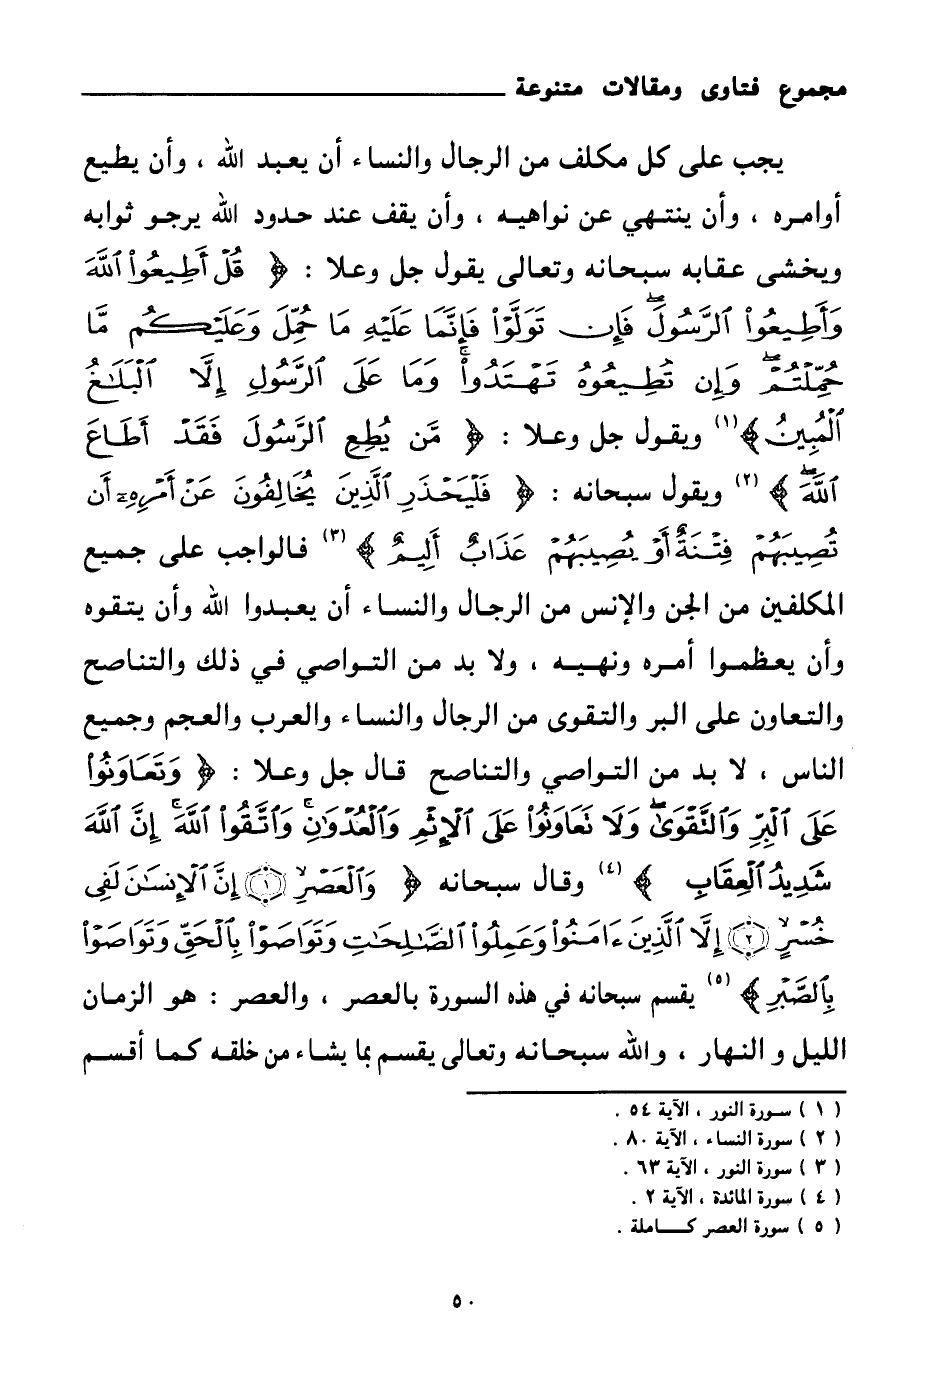 مجموع فتاوى ومقالات متنوعة
يجب على كل مكلف من الرجال والنساء أن يعبد الله ، وأن يطيع
أوامره ، وأن ينتهي عن نواهيه ، وأن يقف عند حدود الله يرجو ثوابه
ويخشى عقابه سبحانه وتعالى يقول جل وعلا : ﴿ قُلْ أَطِيعُوا۟ ٱللَّهَ
وَأَطِيعُوا۟ ٱلرَّسُولَ ۖ فَإِن تَوَلَّوْا۟ فَإِنَّمَا عَلَيْهِ مَا حُمِّلَ وَعَلَيْكُم مَّا
حُمِّلْتُمْ ۖ وَإِن تُطِيعُوهُ تَهْتَدُوا۟ ۚ وَمَا عَلَى ٱلرَّسُولِ إِلَّا ٱلْبَلَـٰغُ
ٱلْمُبِينُ ﴾(١) ويقول جل وعلا : ﴿ مَّن يُطِعِ ٱلرَّسُولَ فَقَدْ أَطَاعَ
ٱللَّهَ ۖ ﴾(٢) ويقول سبحانه : ﴿ فَلْيَحْذَرِ ٱلَّذِينَ يُخَالِفُونَ عَنْ أَمْرِهِۦٓ أَن
تُصِيبَهُمْ فِتْنَةٌ أَوْ يُصِيبَهُمْ عَذَابٌ أَلِيمٌ ﴾(٣) فالواجب على جميع
المكلفين من الجن والإنس من الرجال والنساء أن يعبدوا الله وأن يتقوه
وأن يعظموا أمره ونهيه ، ولا بد من التواصي في ذلك والتناصح
والتعاون على البر والتقوى من الرجال والنساء والعرب والعجم وجميع
الناس ، لا بد من التواصي والتناصح قال جل وعلا : ﴿ وَتَعَاوَنُوا۟
عَلَى ٱلْبِرِّ وَٱلتَّقْوَىٰ ۖ وَلَا تَعَاوَنُوا۟ عَلَى ٱلْإِثْمِ وَٱلْعُدْوَٰنِ ۚ وَٱتَّقُوا۟ ٱللَّهَ ۚ إِنَّ ٱللَّهَ
شَدِيدُ ٱلْعِقَابِ ﴾(٤) وقال سبحانه ﴿ وَٱلْعَصْرِ ﴿١﴾ إِنَّ ٱلْإِنسَـٰنَ لَفِى
خُسْرٍ ﴿٢﴾ إِلَّا ٱلَّذِينَ ءَامَنُوا۟ وَعَمِلُوا۟ ٱلصَّـٰلِحَـٰتِ وَتَوَاصَوْا۟ بِٱلْحَقِّ وَتَوَاصَوْا۟
بِٱلصَّبْرِ ﴾(٥) يقسم سبحانه في هذه السورة بالعصر ، والعصر : هو الزمان
الليل و النهار ، والله سبحانه وتعالى يقسم بما يشاء من خلقه كما أقسم
( ١ ) سورة النور ، الآية ٥٤ .
( ٢ ) سورة النساء ، الآية ٨٠ .
( ٣ ) سورة النور ، الآية ٦٣ .
( ٤ ) سورة المائدة ، الآية ٢ .
( ٥ ) سورة العصر كاملة .
٥٠